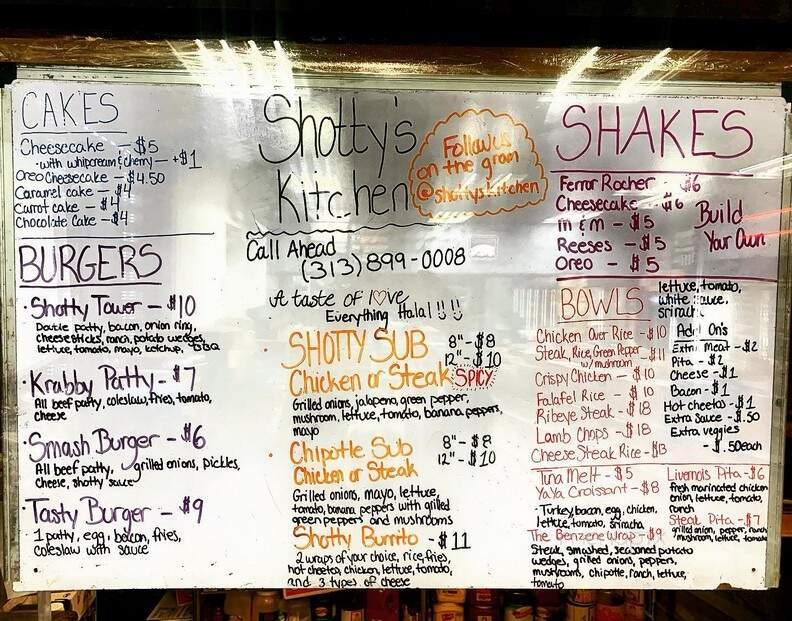 CAKES
Cheesecake - $5
·with whipcream & cherry - +$1
Oreo Cheesecake - $4.50
Caramel cake - $4
Carrot cake - $4
Chocolate Cake - $4
BURGERS
·Shotty Tower - $10
Double patty, bacon, onion ring,
cheesesticks, ranch, potato wedges,
lettuce, tomato, mayo, ketchup, BBQ
·Krabby Patty - $7
All beef patty, coleslaw, fries, tomato,
cheese
·Smash Burger - $6
All beef patty, grilled onions, pickles,
cheese, shotty sauce
·Tasty Burger - $9
1 patty, egg, bacon, fries,
coleslaw with sauce
Shotty's
Kitchen
Follow us
on the gram
@shottyskitchen
Call Ahead
(313) 899-0008
A taste of l♡ve
Everything Halal!!
SHOTTY SUB 8" - $8
12" - $10
Chicken or Steak SPICY
Grilled onions, jalapeno, green pepper,
mushroom, lettuce, tomato, banana peppers,
mayo
Chipotle Sub 8" - $8
12" - $10
Chicken or Steak
Grilled onions, mayo, lettuce
tomato, banana peppers with grilled
green peppers and mushrooms
Shotty Burrito - $11
2 wraps of your choice, rice, fries,
hot cheetos, chicken, lettuce, tomato,
and 3 types of cheese
SHAKES
Ferror Rocher - $6
Cheesecake - $6
m & m - $5
Reeses - $5
Oreo - $5
Build
Your Own
BOWLS
Chicken Over Rice - $10
Steak, Rice, Green Pepper - $11
w/ mushroom
Crispy Chicken - $10
Falafel Rice - $10
Ribeye Steak - $18
Lamb Chops - $18
Cheese Steak Rice - $13
lettuce, tomato,
white sauce,
sriracha
Add On's
Extra Meat - $2
Pita - $2
Cheese - $1
Bacon - $1
Hot cheetos - $1
Extra Sauce - $.50
Extra veggies
- $.50 each
Tuna Melt - $5
YaYa Croissant - $8
·Turkey, bacon, egg, chicken,
lettuce, tomato, sriracha
The Benzene Wrap - $9
Steak, smashed, seasoned potato
wedges, grilled onions, peppers,
mushrooms, chipotle, ranch, lettuce,
tomato
Livernois Pita - $6
fresh marinated chicken
onion, lettuce, tomato,
ranch
Steak Pita - $7
grilled onion, pepper, ranch
mushroom, lettuce, tomato